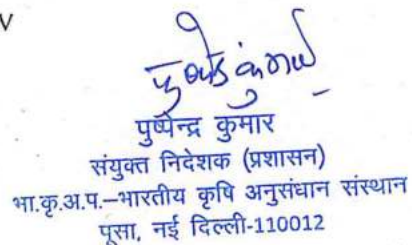 V
पुष्पेन्द्र कुमार
संयुक्त निदेशक (प्रशासन)
भा.कृ.अ.प.–भारतीय कृषि अनुसंधान संस्थान
पूसा, नई दिल्ली-110012